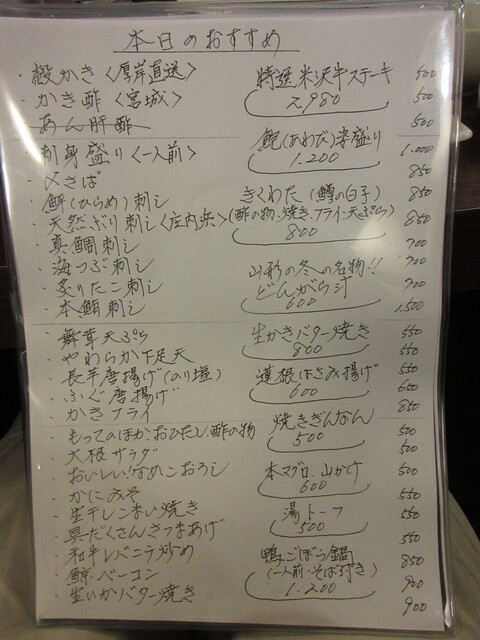 本日のおすすめ
・殻かき〈厚岸直送〉
・かき酢〈宮城〉
・あん肝酢
・刺身盛り〈一人前〉
・〆さば
・鮃(ひらめ)刺し
・天然ぶり刺し〈庄内浜〉
・真鯛刺し
・海つぶ刺し
・炙りたこ刺し
・本鮪刺し
・舞茸天ぷら
・やわらか下足天
・長芋唐揚げ(のり塩)
・ふぐ唐揚げ
・かきフライ
・もってのほか.おひたし.酢の物
・大根サラダ
・おいしい!なめこおろし
・かにみそ
・生干しこまい焼き
・具だくさんさつまあげ
・和牛レバニラ炒め
・鯨ベーコン
・生いかバター焼き
特選米沢牛ステーキ
2,980
鮑(あわび)姿盛り
1.200
きくわた(鱈の白子)
(酢の物・焼き・フライ・天ぷら)
800
山形の冬の名物!!
どんがら汁
600
生かきバター焼き
800
蓮根はさみ揚げ
600
焼きぎんなん
500
本マグロ山かけ
600
湯トーフ
500
鴨ごぼう鍋
(一人前・そば付き)
1.200
500
500
500
1.000
850
850
850
700
700
700
1.500
550
550
550
600
850
500
500
500
550
550
550
850
900
900